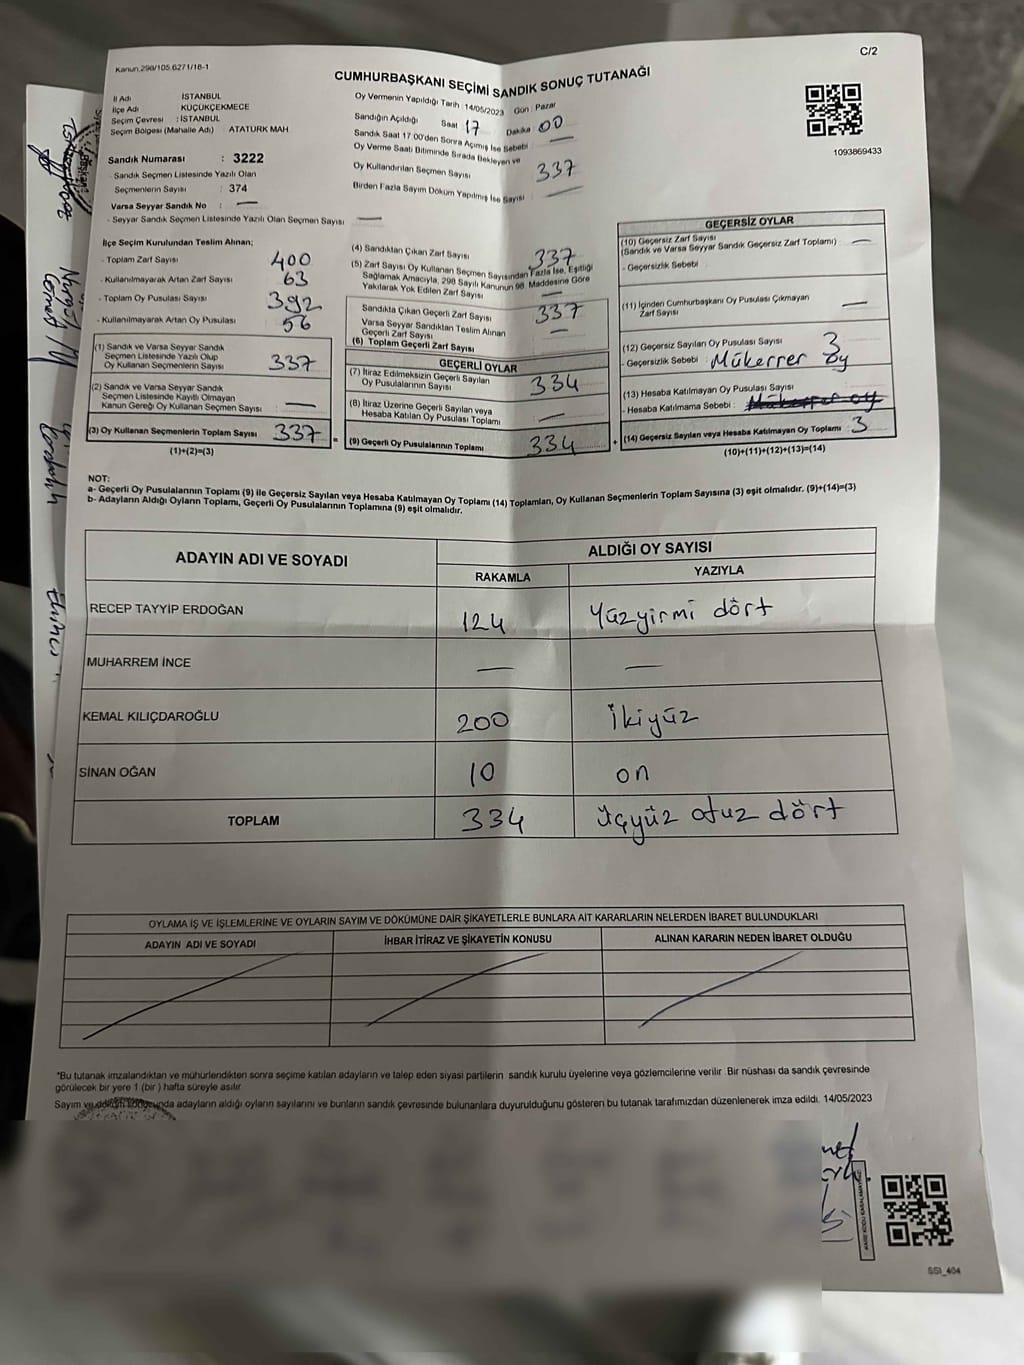 C/2
Kanun.298/105.6271/18-1
CUMHURBAŞKANI SEÇİMİ SANDIK SONUÇ TUTANAĞI
1093869433
İl Adı İSTANBUL
İlçe Adı KÜÇÜKÇEKMECE
Seçim Çevresi : İSTANBUL
Seçim Bölgesi (Mahalle Adı) ATATÜRK MAH
Sandık Numarası : 3222
Sandık Seçmen Listesinde Yazılı Olan
Seçmenlerin Sayısı : 374
Varsa Seyyar Sandık No : —
- Seyyar Sandık Seçmen Listesinde Yazılı Olan Seçmen Sayısı —
Oy Vermenin Yapıldığı Tarih : 14/05/2023 Gün : Pazar
Sandığın Açıldığı Saat 17 Dakika 00
Sandık Saat 17:00'den Sonra Açımış İse Sebebi —
Oy Verme Saati Bitiminde Sırada Bekleyen ve
Oy Kullandırılan Seçmen Sayısı 337
Birden Fazla Sayım Döküm Yapılmış İse Sayısı : —
İlçe Seçim Kurulundan Teslim Alınan;
- Toplam Zarf Sayısı 400
- Kullanılmayarak Artan Zarf Sayısı 63
- Toplam Oy Pusulası Sayısı 392
- Kullanılmayarak Artan Oy Pusulası 56
(1) Sandık ve Varsa Seyyar Sandık
Seçmen Listesinde Yazılı Olup
Oy Kullanan Seçmenlerin Sayısı 337
(2) Sandık ve Varsa Seyyar Sandık
Seçmen Listesinde Kayıtlı Olmayan
Kanun Gereği Oy Kullanan Seçmen Sayısı —
(3) Oy Kullanan Seçmenlerin Toplam Sayısı 337 =
(1)+(2)=(3)
(4) Sandıktan Çıkan Zarf Sayısı 337
(5) Zarf Sayısı Oy Kullanan Seçmen Sayısından Fazla İse, Eşitliği
Sağlamak Amacıyla, 298 Sayılı Kanunun 98. Maddesine Göre
Yakılarak Yok Edilen Zarf Sayısı —
Sandıkta Çıkan Geçerli Zarf Sayısı 337
Varsa Seyyar Sandıktan Teslim Alınan
Geçerli Zarf Sayısı —
(6) Toplam Geçerli Zarf Sayısı
GEÇERLİ OYLAR
(7) İtiraz Edilmeksizin Geçerli Sayılan
Oy Pusulalarının Sayısı 334
(8) İtiraz Üzerine Geçerli Sayılan veya
Hesaba Katılan Oy Pusulası Toplamı —
(9) Geçerli Oy Pusulalarının Toplamı 334 +
GEÇERSİZ OYLAR
(10) Geçersiz Zarf Sayısı
(Sandık ve Varsa Seyyar Sandık Geçersiz Zarf Toplamı) —
- Geçersizlik Sebebi
(11) İçinden Cumhurbaşkanı Oy Pusulası Çıkmayan
Zarf Sayısı —
(12) Geçersiz Sayılan Oy Pusulası Sayısı 3
- Geçersizlik Sebebi : Mükerrer oy
(13) Hesaba Katılmayan Oy Pusulası Sayısı
- Hesaba Katılmama Sebebi : Mükerrer oy
(14) Geçersiz Sayılan veya Hesaba Katılmayan Oy Toplamı 3
(10)+(11)+(12)+(13)=(14)
NOT:
a- Geçerli Oy Pusulalarının Toplamı (9) ile Geçersiz Sayılan veya Hesaba Katılmayan Oy Toplamı (14) Toplamları, Oy Kullanan Seçmenlerin Toplam Sayısına (3) eşit olmalıdır. (9)+(14)=(3)
b- Adayların Aldığı Oyların Toplamı, Geçerli Oy Pusulalarının Toplamına (9) eşit olmalıdır.
ADAYIN ADI VE SOYADI
ALDIĞI OY SAYISI
RAKAMLA YAZIYLA
RECEP TAYYİP ERDOĞAN 124 Yüzyirmi dört
MUHARREM İNCE — —
KEMAL KILIÇDAROĞLU 200 İkiyüz
SİNAN OĞAN 10 on
TOPLAM 334 Üçyüz otuz dört
OYLAMA İŞ VE İŞLEMLERİNE VE OYLARIN SAYIM VE DÖKÜMÜNE DAİR ŞİKAYETLERLE BUNLARA AİT KARARLARIN NELERDEN İBARET BULUNDUKLARI
ADAYIN ADI VE SOYADI İHBAR İTİRAZ VE ŞİKAYETİN KONUSU ALINAN KARARIN NEDEN İBARET OLDUĞU
*Bu tutanak imzalandıktan ve mühürlendikten sonra seçime katılan adayların ve talep eden siyasi partilerin sandık kurulu üyelerine veya gözlemcilerine verilir. Bir nüshası da sandık çevresinde
görülecek bir yere 1 (bir ) hafta süreyle asılır
Sayım ve döküm sonucunda adayların aldığı oyların sayılarını ve bunların sandık çevresinde bulunanlara duyurulduğunu gösteren bu tutanak tarafımızdan düzenlenerek imza edildi. 14/05/2023
SSI_404